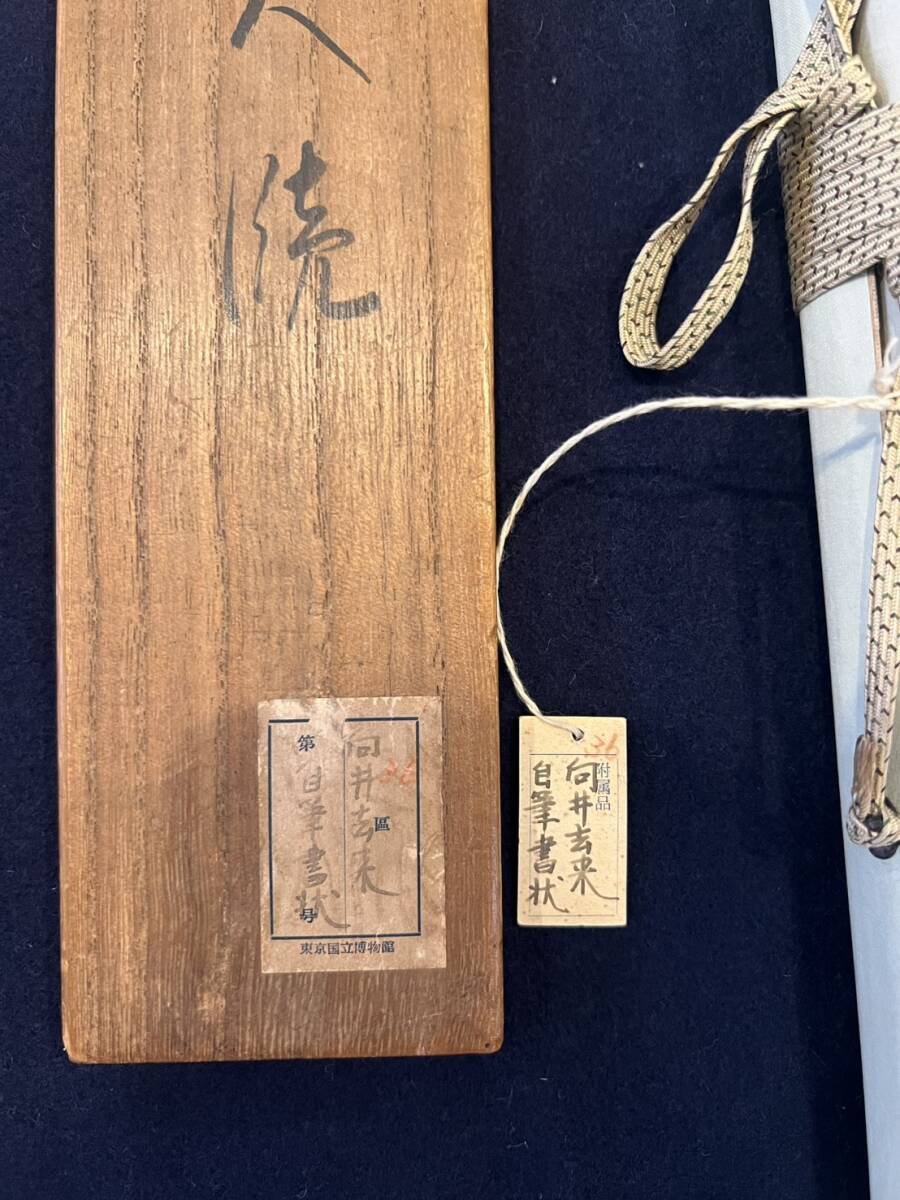 牘
36
向井去来
自筆書状
第
區
号
東京国立博物館
36
附属品
向井去来
自筆書状